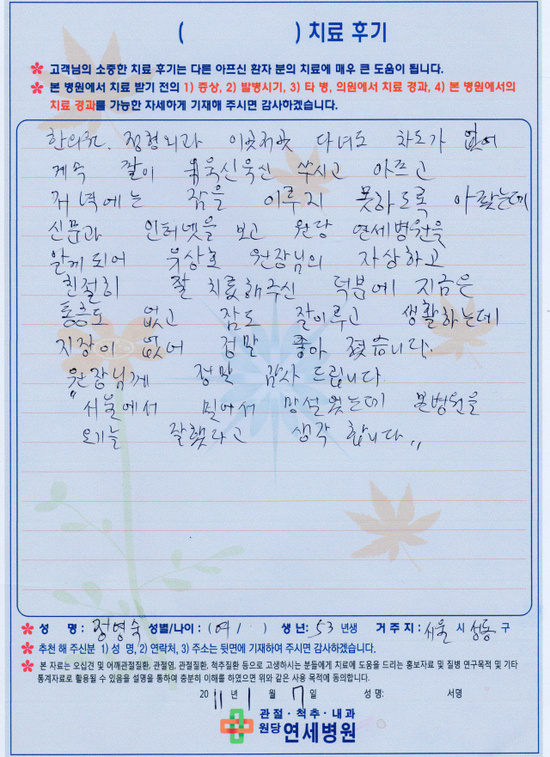 (              ) 치료 후기
고객님의 소중한 치료 후기는 다른 아프신 환자 분의 치료에 매우 큰 도움이 됩니다.
본 병원에서 치료 받기 전의 1) 증상, 2) 발병시기, 3) 타 병, 의원에서 치료 경과, 4) 본 병원에서의
치료 경과를 가능한 자세하게 기재해 주시면 감사하겠습니다.
한의원. 정형외과 이곳저곳 다녀도 차도가 없어
계속 팔이 욱신욱신 쑤시고 아프고
저녁에는 잠을 이루지 못하도록 아팠는데
신문과 인터넷을 보고 원당 연세병원을
알게되어 유상호 원장님의 자상하고
친절히 잘 치료해주신 덕분에 지금은
통증도 없고 잠도 잘이루고 생활하는데
지장이 없어 정말 좋아 졌습니다.
원장님께 정말 감사 드립니다
"서울에서 멀어서 망설였는데 본병원을
오기늘 잘했다고 생각 합니다"
성 명: 정영숙 성별/나이: (여 / ) 생년: 53년생 거주지: 서울 시 성동 구
추천 해 주신분 1) 성 명, 2) 연락처, 3) 주소는 뒷면에 기재하여 주시면 감사하겠습니다.
본 자료는 오십견 및 어깨관절질환, 관절염, 관절질환, 척추질환 등으로 고생하시는 분들에게 치료에 도움을 드리는 홍보자료 및 질병 연구목적 및 기타
통계자료로 활용될 수 있음을 설명을 통하여 충분히 이해를 하였으면 위와 같은 사용 목적에 동의합니다.
20 11 년 1 월 7 일 성 명: 서명
관절·척추·내과
원당 연세병원